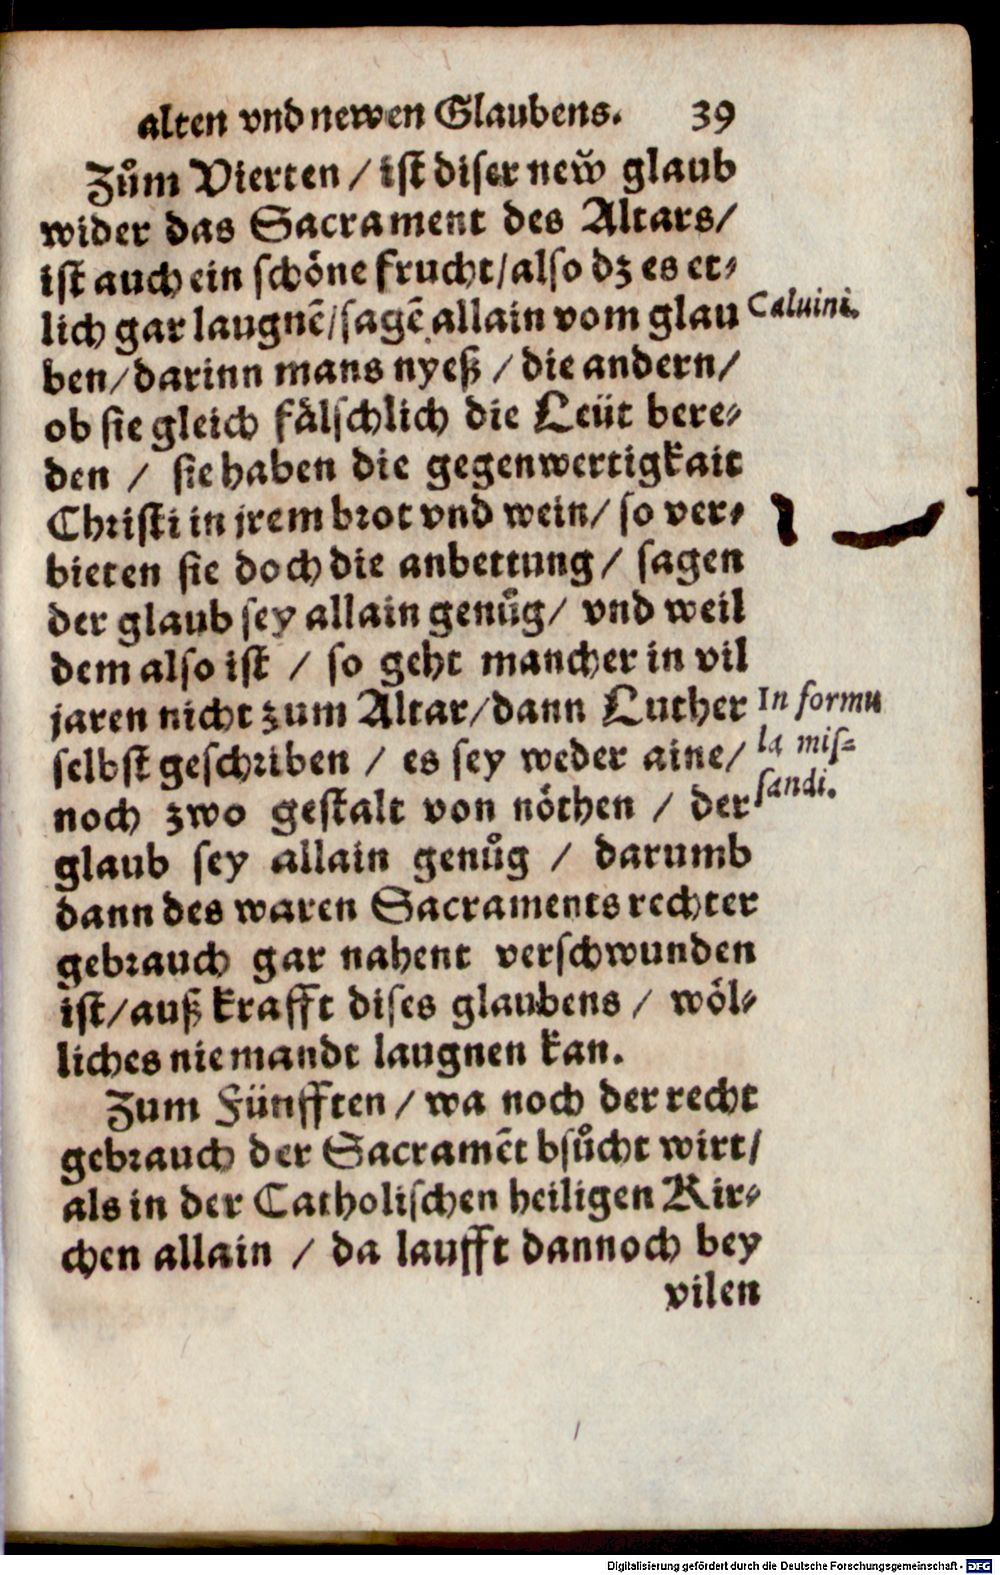 alten vnd newen Glaubens. 39
Zům Vierten / ist diser new̆ glaub
wider das Sacrament des Altars/
ist auch ein schöne frucht/also dz es et-
lich gar laugnẽ/sagẽ allain vom glau
Caluini.
ben/darinn mans nyeß / die andern/
ob sie gleich fälschlich die Leüt bere-
den / sie haben die gegenwertigkait
Christi in jrem brot vnd wein/ so ver-
bieten sie doch die anbettung / sagen
der glaub sey allain genůg/ vnd weil
dem also ist / so geht mancher in vil
jaren nicht zum Altar/dann Luther
In formu
selbst geschriben / es sey weder aine/
la mis-
noch zwo gestalt von nöthen / der
sandi.
glaub sey allain genůg / darumb
dann des waren Sacraments rechter
gebrauch gar nahent verschwunden
ist/auß krafft dises glaubens / wöl-
liches niemandt laugnen kan.
Zum Fünfften / wa noch der recht
gebrauch der Sacramẽt bsůcht wirt/
als in der Catholischen heiligen Kir-
chen allain / da laufft dannoch bey
vilen
Digitalisierung gefördert durch die Deutsche Forschungsgemeinschaft - DFG